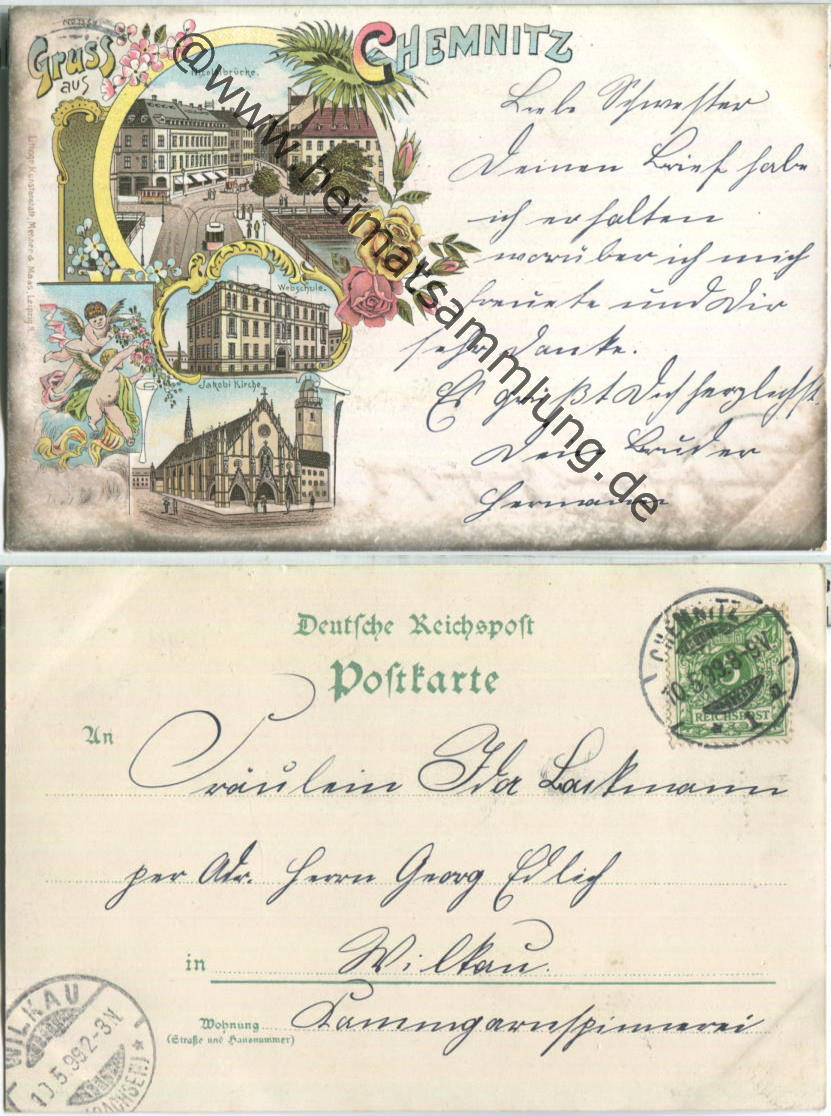 Gruss
aus
CHEMNITZ
Nicolaibrücke.
Webschule.
Jakobi Kirche.
@www.heimatsammlung.de
Liebe Schwester
Deinen Brief habe
ich erhalten
worüber ich mich
freuete und Dir
sehr danke.
Es grüßt Dich herzlichst
Dein Bruder
Hermann
Deutsche Reichspost
Postkarte
CHEMNITZ
10.5.99.8-9V.
* 1 a
5
REICHSPOST
An
Fräulein Ida Lackmann
per Adr. Herrn Georg Edlich
in Wilkau.
Wohnung Kammgarnspinnerei
(Straße und Hausnummer)
WILKAU
10.5.99.2-3N.
(SACHSEN) *